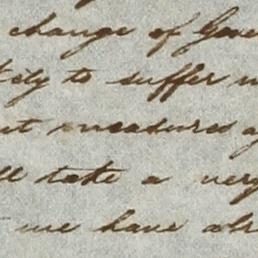 change of Gove
ely to suffer
measures
ll take a very
we have alr